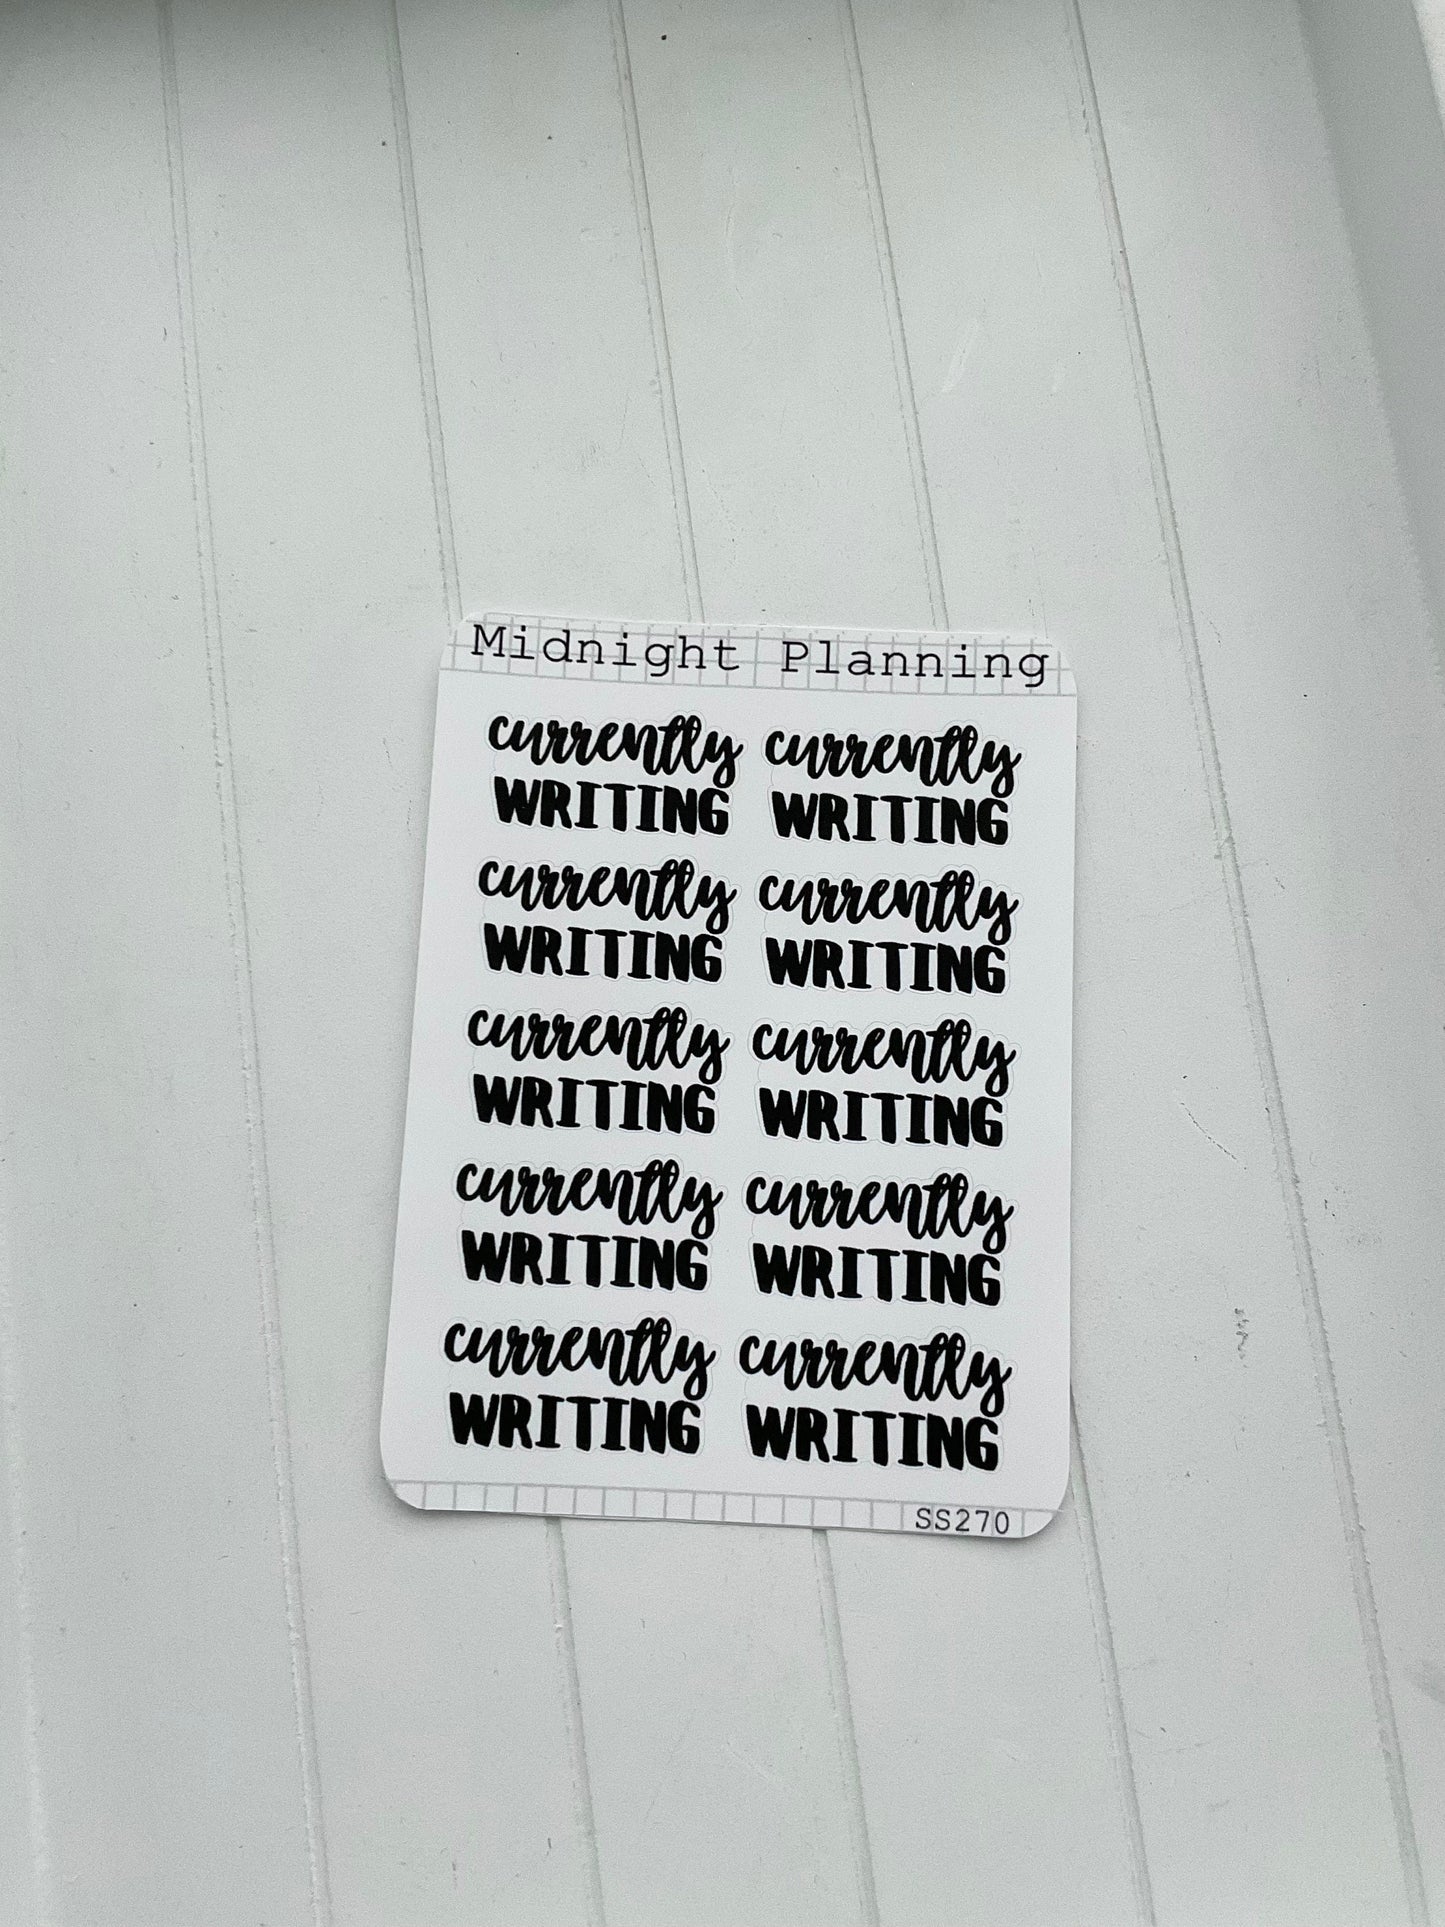 Midnight Planning
currently currently
WRITING WRITING
currently currently
WRITING WRITING
currently currently
WRITING WRITING
currently currently
WRITING WRITING
currently currently
WRITING WRITING
SS270